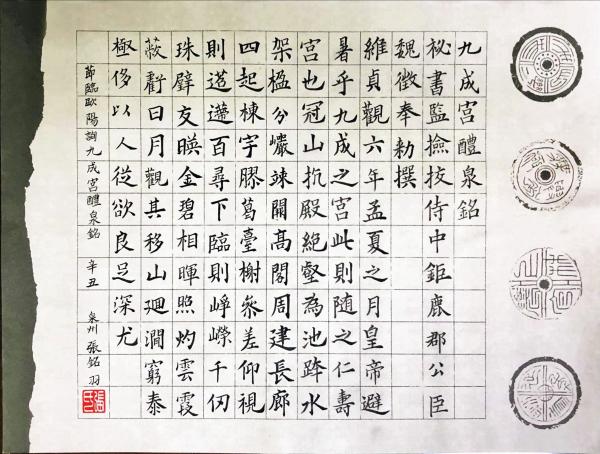 九成宮醴泉銘
秘書監撿挍侍中鉅鹿郡公臣
魏徵奉勑撰
維貞觀六年孟夏之月皇帝避
暑乎九成之宮此則随之仁壽
宮也冠山抗殿絶壑為池跨水
架楹分巖竦闕高閣周建長廊
四起棟宇膠葛臺榭叅差仰視
則迢遰百尋下臨則崢嶸千仞
珠璧交暎金碧相暉照灼雲霞
蔽虧日月觀其移山迴澗窮泰
極侈以人從欲良足深尤
節臨歐陽詢九成宮醴泉銘 辛丑 泉州 張銘羽
張氏